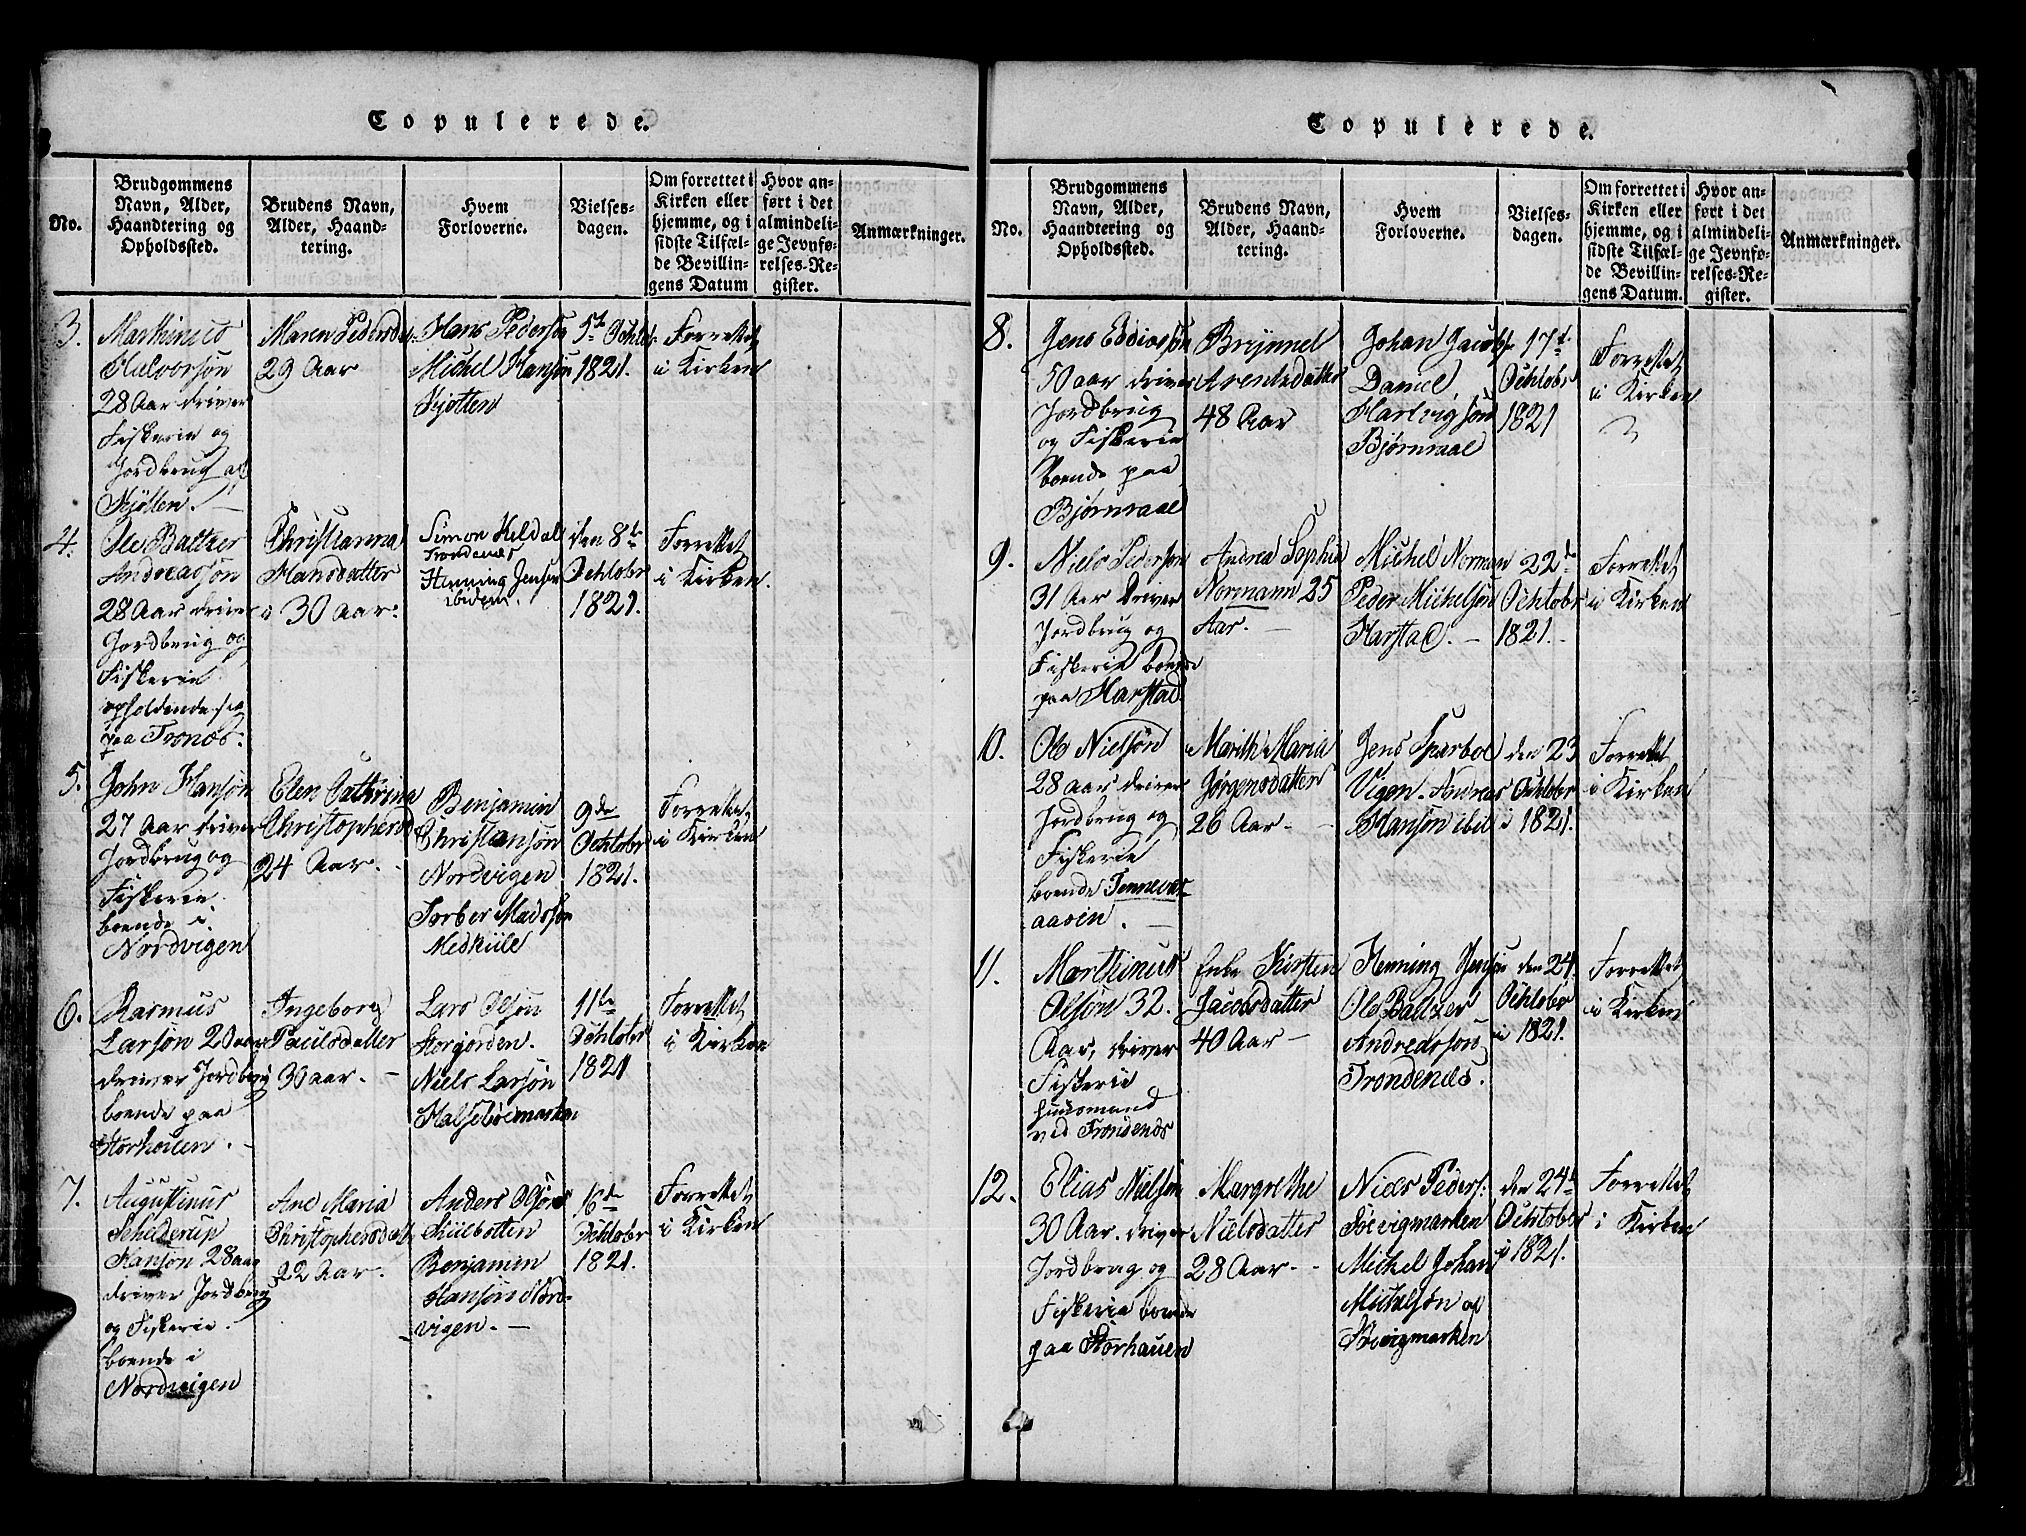 Copulerede.
No.
Brudgommens
Navn, Alder,
Haandtering og
Opholdssted.
Brudens Navn,
Alder, Haand-
tering.
Hvem
Forloverne.
Vielses-
dagen.
Om forrettet i
Kirken eller
hjemme, og i
sidste Tilfæl-
de Bevillin-
gens Datum
Hvor an-
ført i det
almindeli-
ge Jevnfø-
relses-Re-
gister.
Anmærkninger.
3.
Marthinus
Halvorsön
28 Aar driver
Fiskerie og
Jordbrug
Kjötten.
Maren Pedersdat
29 Aar
Hans Pedersön
Michel Hansön
Kjotten
5te Ochtob
1821.
Forrettet
i Kirken
4.
Ole Baltzer
Andreasson
28 Aar driver
Jordbrug og
Fiskerie
opholdende sig
paa Tronæs.
Christianna
Hansdatter
30 Aar.
Simon Kildal
Trondenæs
Henning Jensen
ibidem.
den 8de
Ochtobr
1821.
Forrettet
i Kirken.
5.
John Hansön
27 Aar driver
Jordbrug og
Fiskerie
boende i
Nordvigen
Elen Cathrina
Christophersd
24 Aar.
Benjamin
Christiansön
Nordvigen
Torber Madsön
Medkiile
9de
Ochtobr
1821.
Forrettet
i Kirken
6.
Rasmus
Larsön 20 aar
driver Jordbrug
boende paa
Storhouen.
Ingeborg
Paulsdatter
30 aar.
Lars Olsön
Storjorden.
Niels Larsön
Halseböemarken
11te
Ochtobr
1821
Forrettet
i Kirken
7.
Augustinus
Schielderup
Hansön 28 aar
driver Jordbrug
og Fiskerie.
boende i
Nordvigen
Ane Maria
Christophersdatt
22 Aar.
Anders Olsön
Kiilbotten
Benjamin
Hansön Nor-
vigen.
16de
Ochtobr
1821.
Forrettet
i Kirken
Copulerede.
No.
Brudgommens
Navn, Alder,
Haandtering og
Opholdssted.
Brudens Navn,
Alder, Haand-
tering.
Hvem
Forloverne.
Vielses-
dagen.
Om forrettet i
Kirken eller
hjemme, og i
sidste Tilfæl-
de Bevillin-
gens Datum.
Hvor an-
ført i det
almindeli-
ge Jevnfø-
relses-Re-
gister.
Anmærkninger.
8.
Jens
50 aar driver
Jordbrug
og Fiskerie
boende paa
Bjørnraae
Brynnel
Arentsdatter
48 Aar
Johan Jacobs
Daniel
Hartvigsön
Bjørnraae
17de
Ochtobr
1821
Forrettet
i Kirken
9.
Niels Pedersön
31 Aar Driver
Jordbrug og
Fiskerie boende
paa Harstad
Andrea Sophia
Normann 25
Aar.
Michel Norman
Peder Michelsön
Harstad.
22de
Ochtobr
1821.
Forrettet
i Kirken
10.
Ole Nielsön
28 aar driver
Jordbrug og
Fiskerie
boende Tennevas-
aasen.
Marith Maria
Jørgensdatter
26 Aar
Jens Sparboe
Vigen. Andreas
Hansön ibid
den 23
Ochtober
1821.
Forrettet
i Kirken
11.
Marthinus
Olsön 32.
Aar, driver
Fiskerie
Huusmand
ved Trondenæs
Enke Kirsten
Jacobsdatter
40 Aar
Henning Jensen
Ole Baltzer
Andreassön
Trondenæs.
den 24.
Ochtober
1821.
Forrettet
i Kirken
12.
Elias Nielsön
30 Aar. driver
Jordbrug og
Fiskerie boende
paa Storhauen
Margrethe
Nielsdatter
28 Aar.
Nicls Peders:
Söevigmarken
Michel Johan
Michelsön af
Söevigmarken
den 24de
Ochtober
1821.
Forrettet
i Kirken